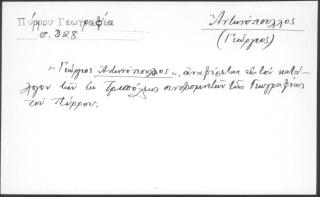 Πύρρου Γεωγραφία
σ. 328
Ἀντωνόπουλλος
(Γεώργιος)
"Γεώργιος Ἀντωνόπουλλος", ἀναφέρεται εἰς τὸν κατά-
λογον τῶν ἐκ Τριπόλεως συνδρομητῶν τῆς Γεωγραφίας
τοῦ Πύρρου.